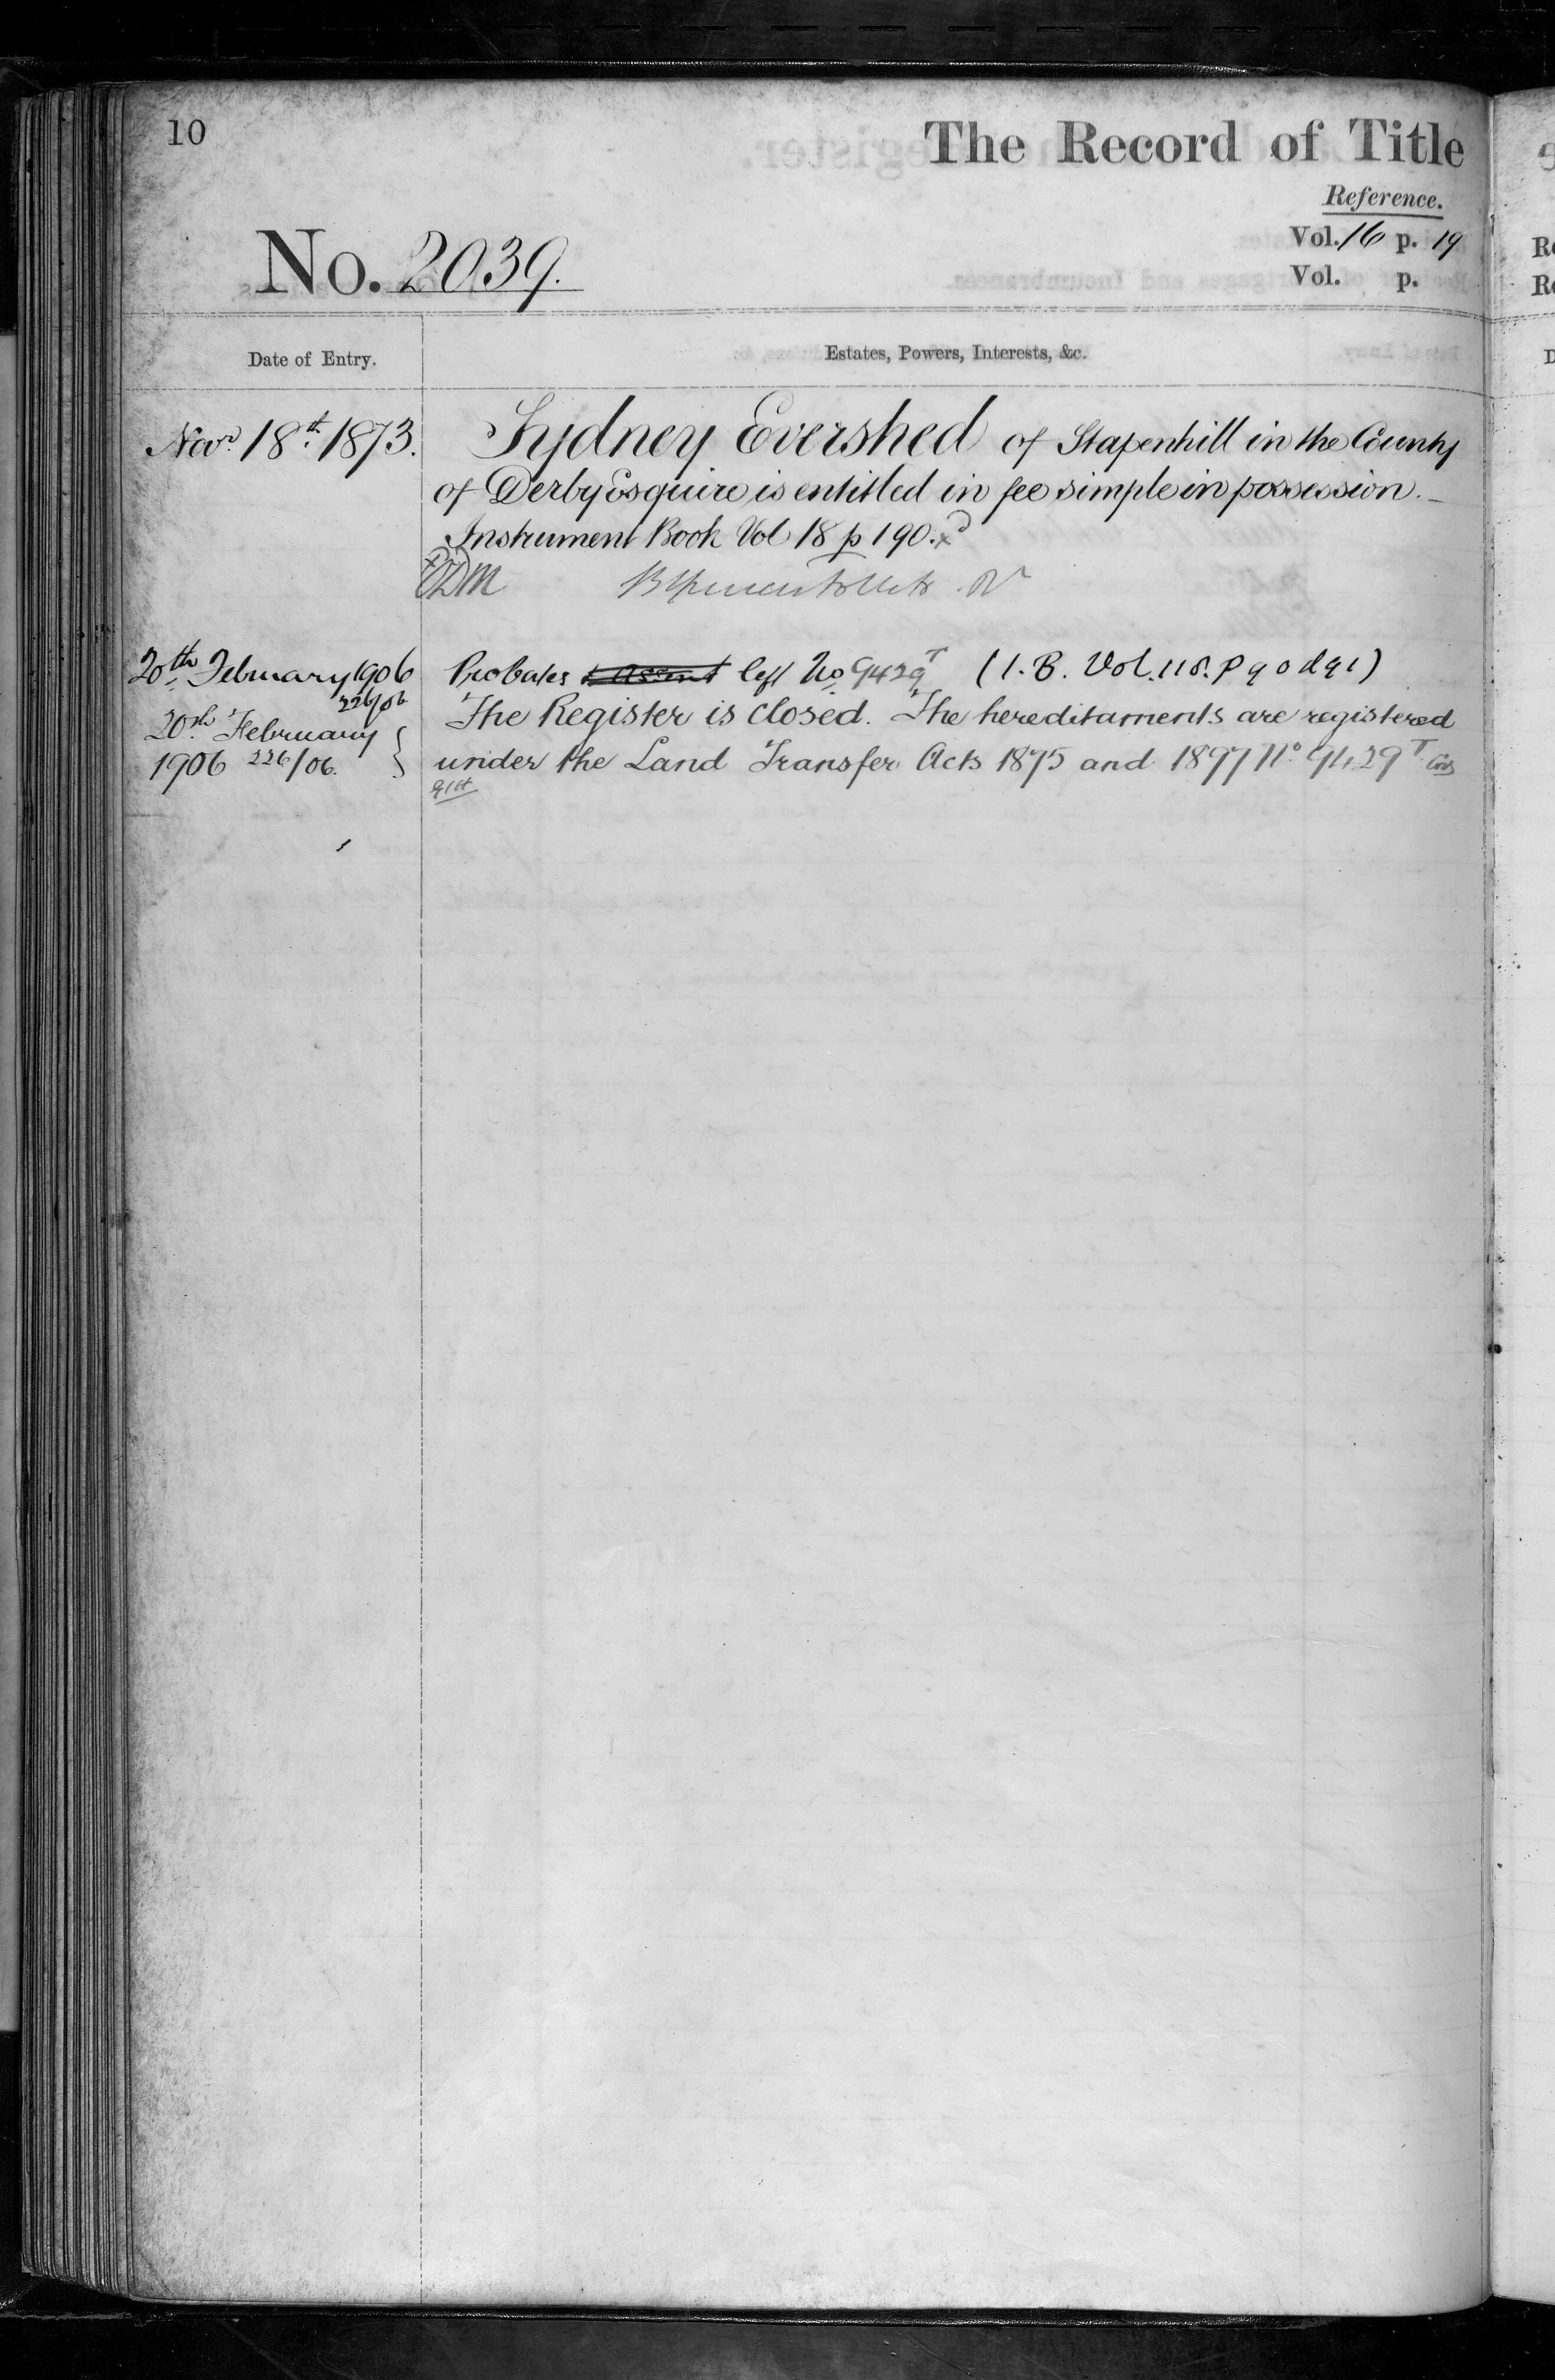 10
The Record of Title
Reference.
Vol. 16 p. 19
Vol. p.
No. 2039.
Date of Entry.
Estates, Powers, Interests, &c.
Novr. 18th. 1873.
Sydney Evershed of Stapenhill in the County
of Derby Esquire is entitled in fee simple in possession.
Instrument Book Vol 18 p 190.
20th February 1906
226/06
Probates & Assent left No 9429T (I.B. Vol. 118. p 90 & 91)
20th February
1906 226/06.
The Register is closed. The hereditaments are registered
under the Land Transfer Acts 1875 and 1897 No. 9429T